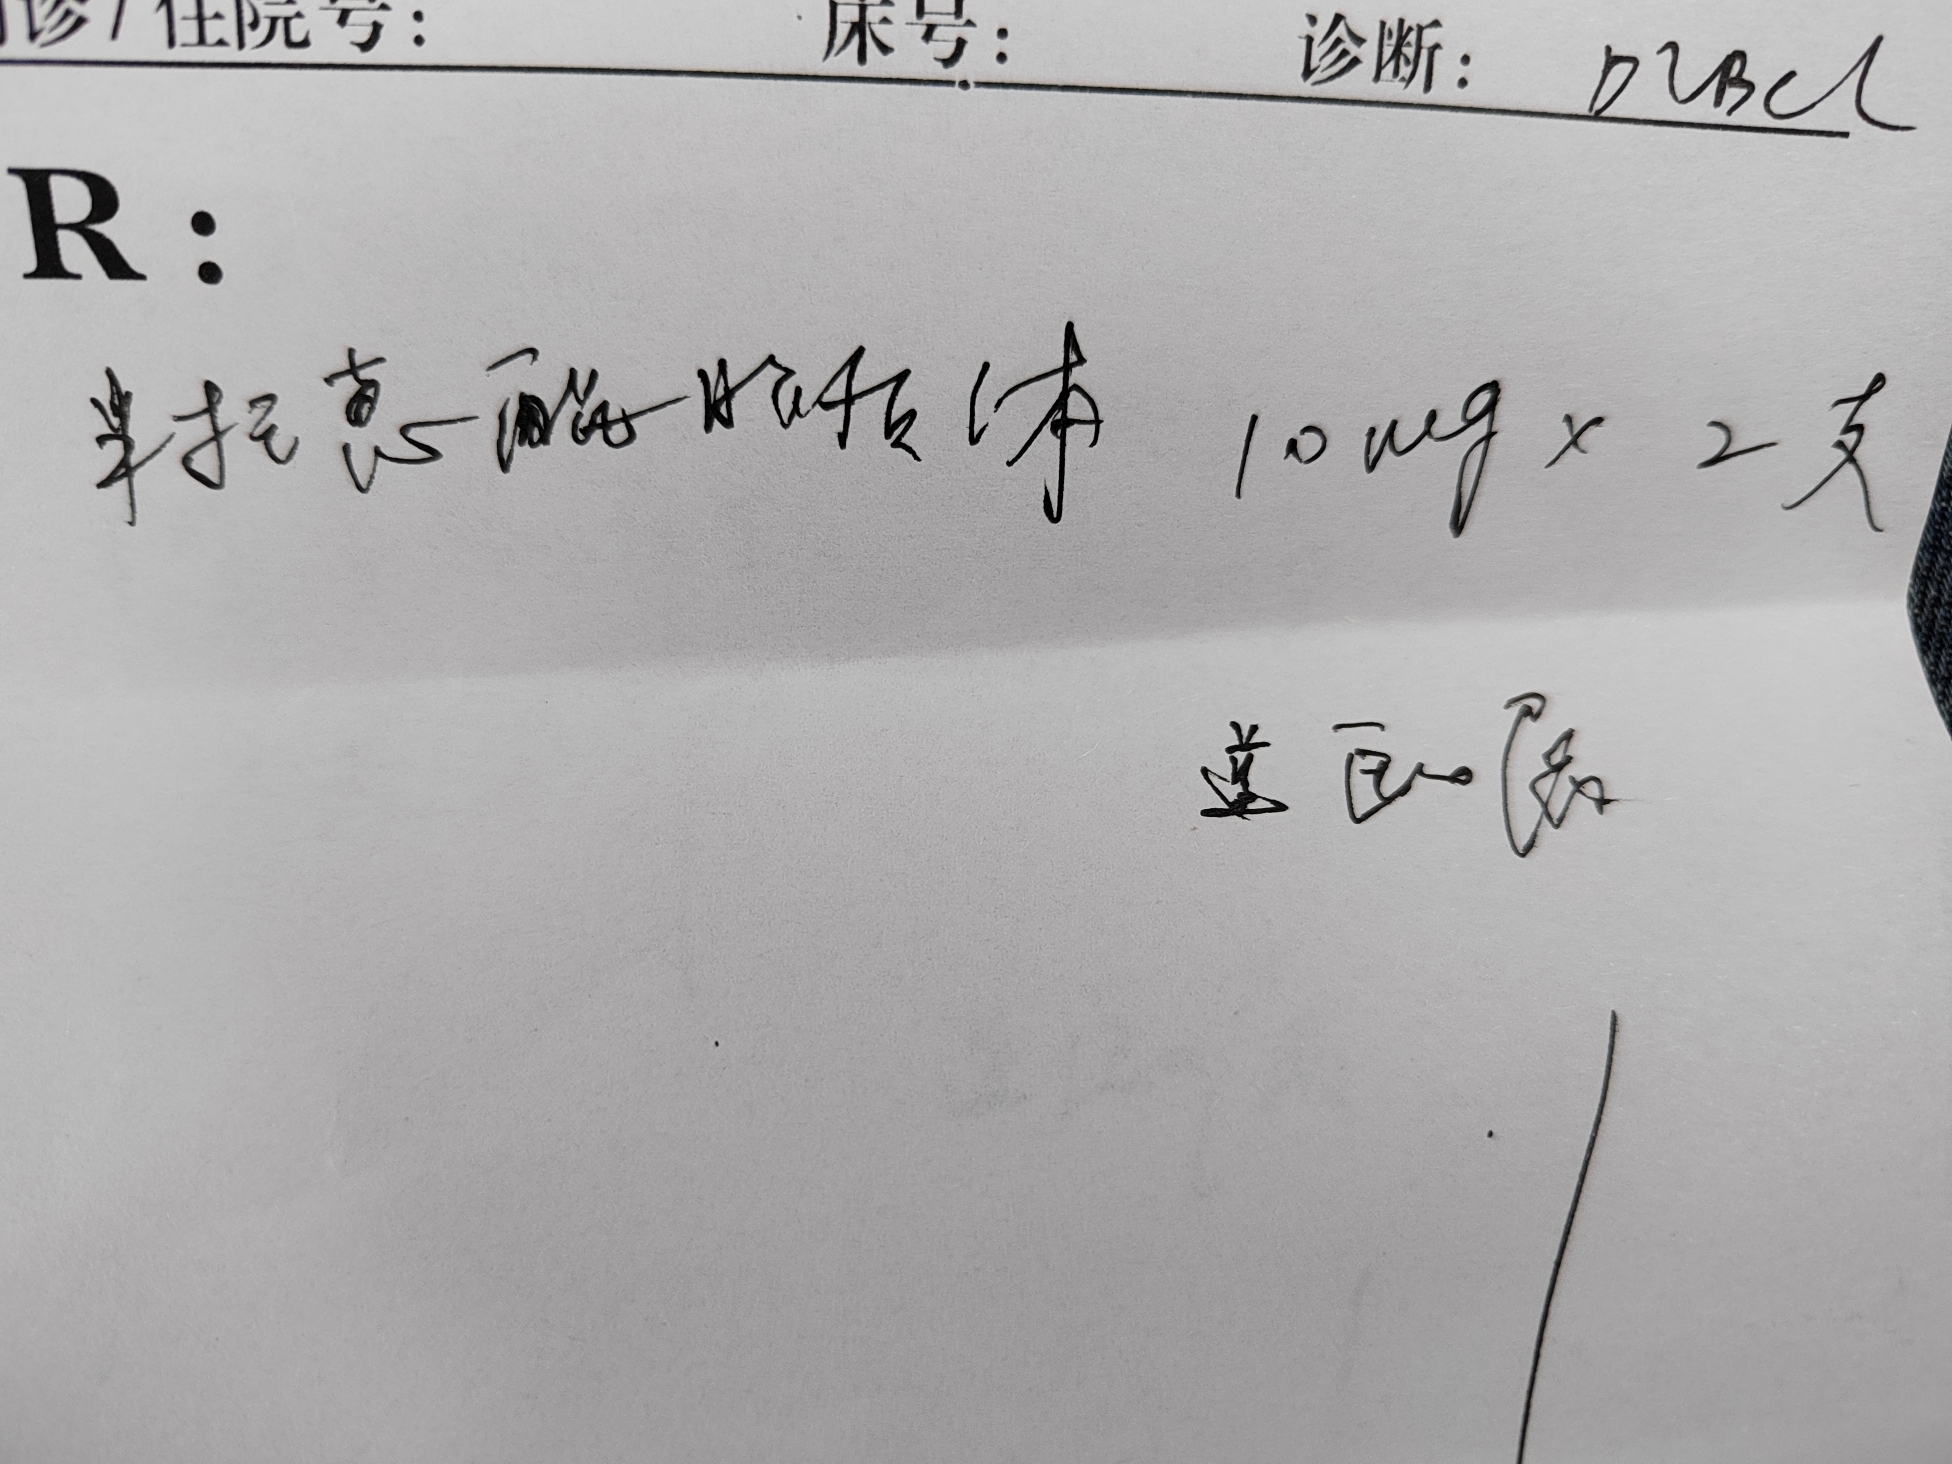 诊/住院号: 床号: 诊断: DLBCL
R:
米托蒽醌脂质体 10mg × 2支
遵医嘱